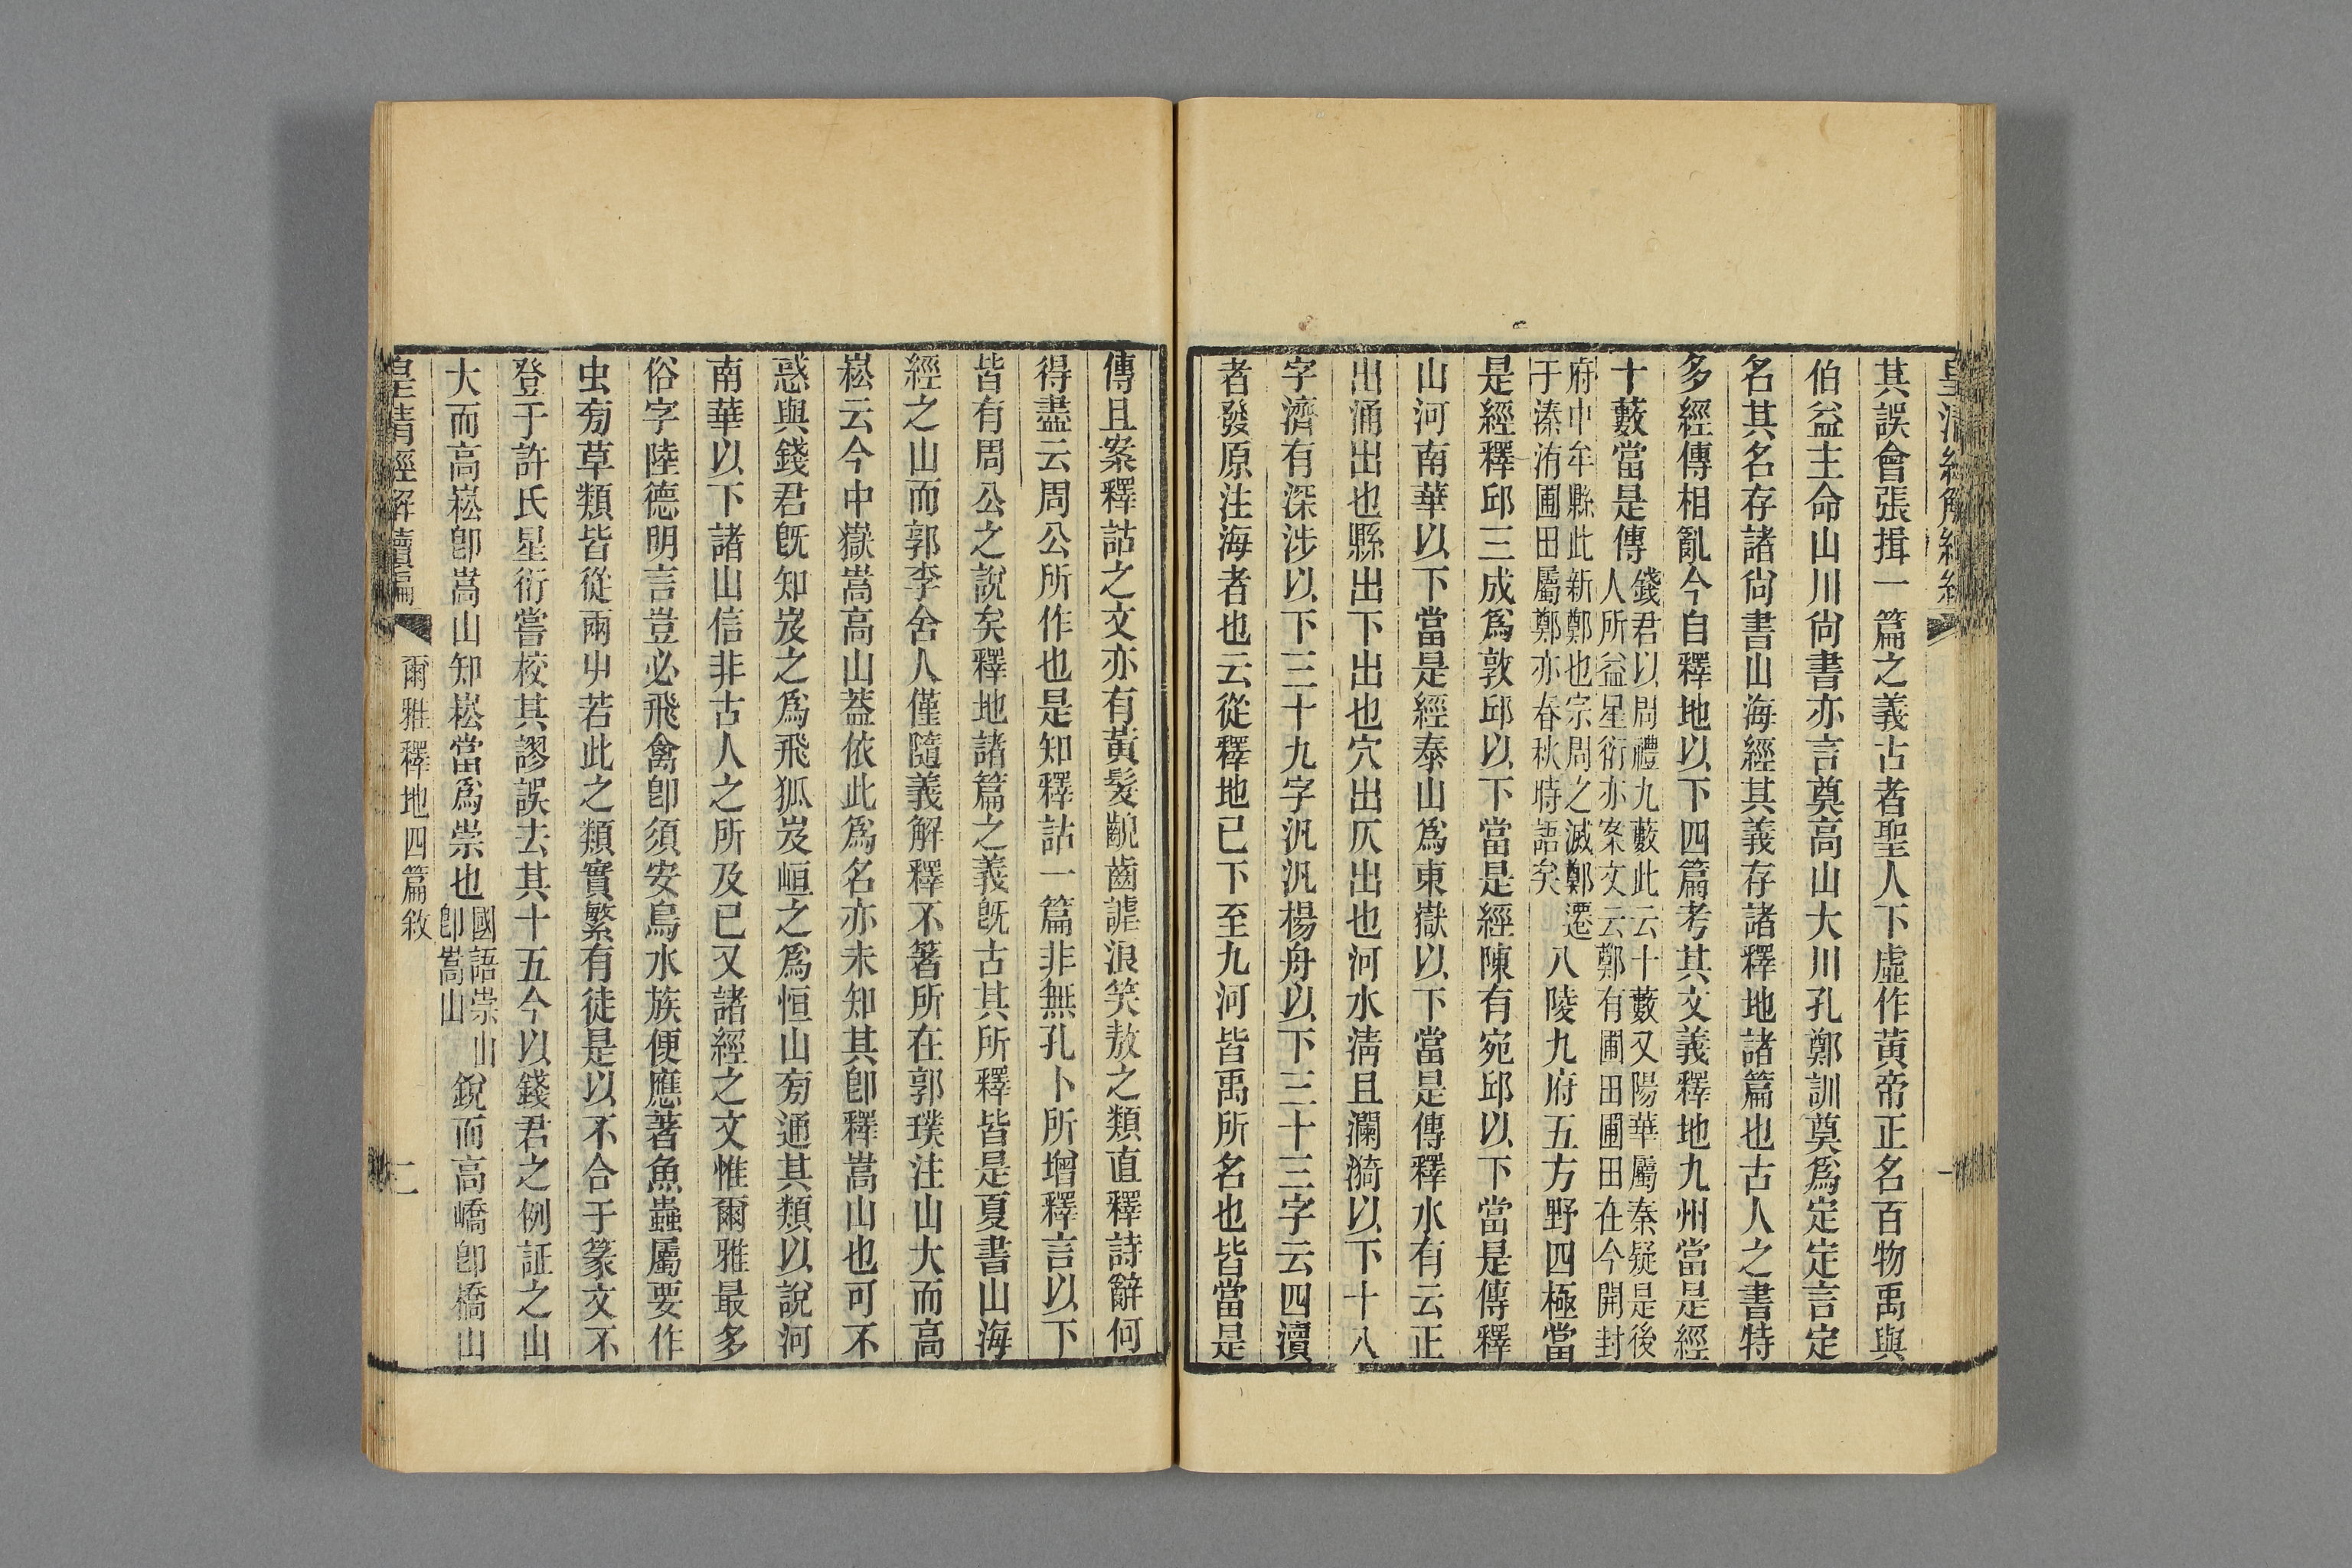 其誤會張揖一篇之義古者聖人下虛作黃帝正名百物禹與
伯益主命山川尙書亦言奠高山大川孔鄭訓奠爲定定言定
名其名存諸尙書山海經其義存諸釋地諸篇也古人之書特
多經傳相亂今自釋地以下四篇考其文義釋地九州當是經
十藪當是傳錢君以周禮九藪此云十藪又陽華屬秦疑是後
人所益星衍亦案文云鄭有圃田圃田在今開封
府中牟縣此新鄭也宗周之滅鄭遷
于溱洧圃田屬鄭亦春秋時語矣八陵九府五方野四極當
是經釋邱三成爲敦邱以下當是經陳有宛邱以下當是傳釋
山河南華以下當是經泰山爲東嶽以下當是傳釋水有云正
出涌出也縣出下出也穴出仄出也河水淸且瀾漪以下十八
字濟有深涉以下三十九字汎汎楊舟以下三十三字云四瀆
者發原注海者也云從釋地已下至九河皆禹所名也皆當是
傳且案釋詁之文亦有黃髮齯齒謔浪笑敖之類直釋詩辭何
得盡云周公所作也是知釋詁一篇非無孔卜所增釋言以下
皆有周公之說矣釋地諸篇之義旣古其所釋皆是夏書山海
經之山而郭李舍人僅隨義解釋不箸所在郭璞注山大而高
崧云今中嶽嵩高山葢依此爲名亦未知其卽釋嵩山也可不
惑與錢君旣知岌之爲飛狐岌峘之爲恒山旁通其類以說河
南華以下諸山信非古人之所及已又諸經之文惟爾雅最多
俗字陸德明言豈必飛禽卽須安鳥水族便應著魚蟲屬要作
虫旁草類皆從兩屮若此之類實繁有徒是以不合于篆文不
登于許氏星衍嘗校其謬誤去其十五今以錢君之例証之山
大而高崧卽嵩山知崧當爲崇也國語崇山
卽嵩山銳而高嶠卽橋山
皇淸經解續編 爾雅釋地四篇敘 二